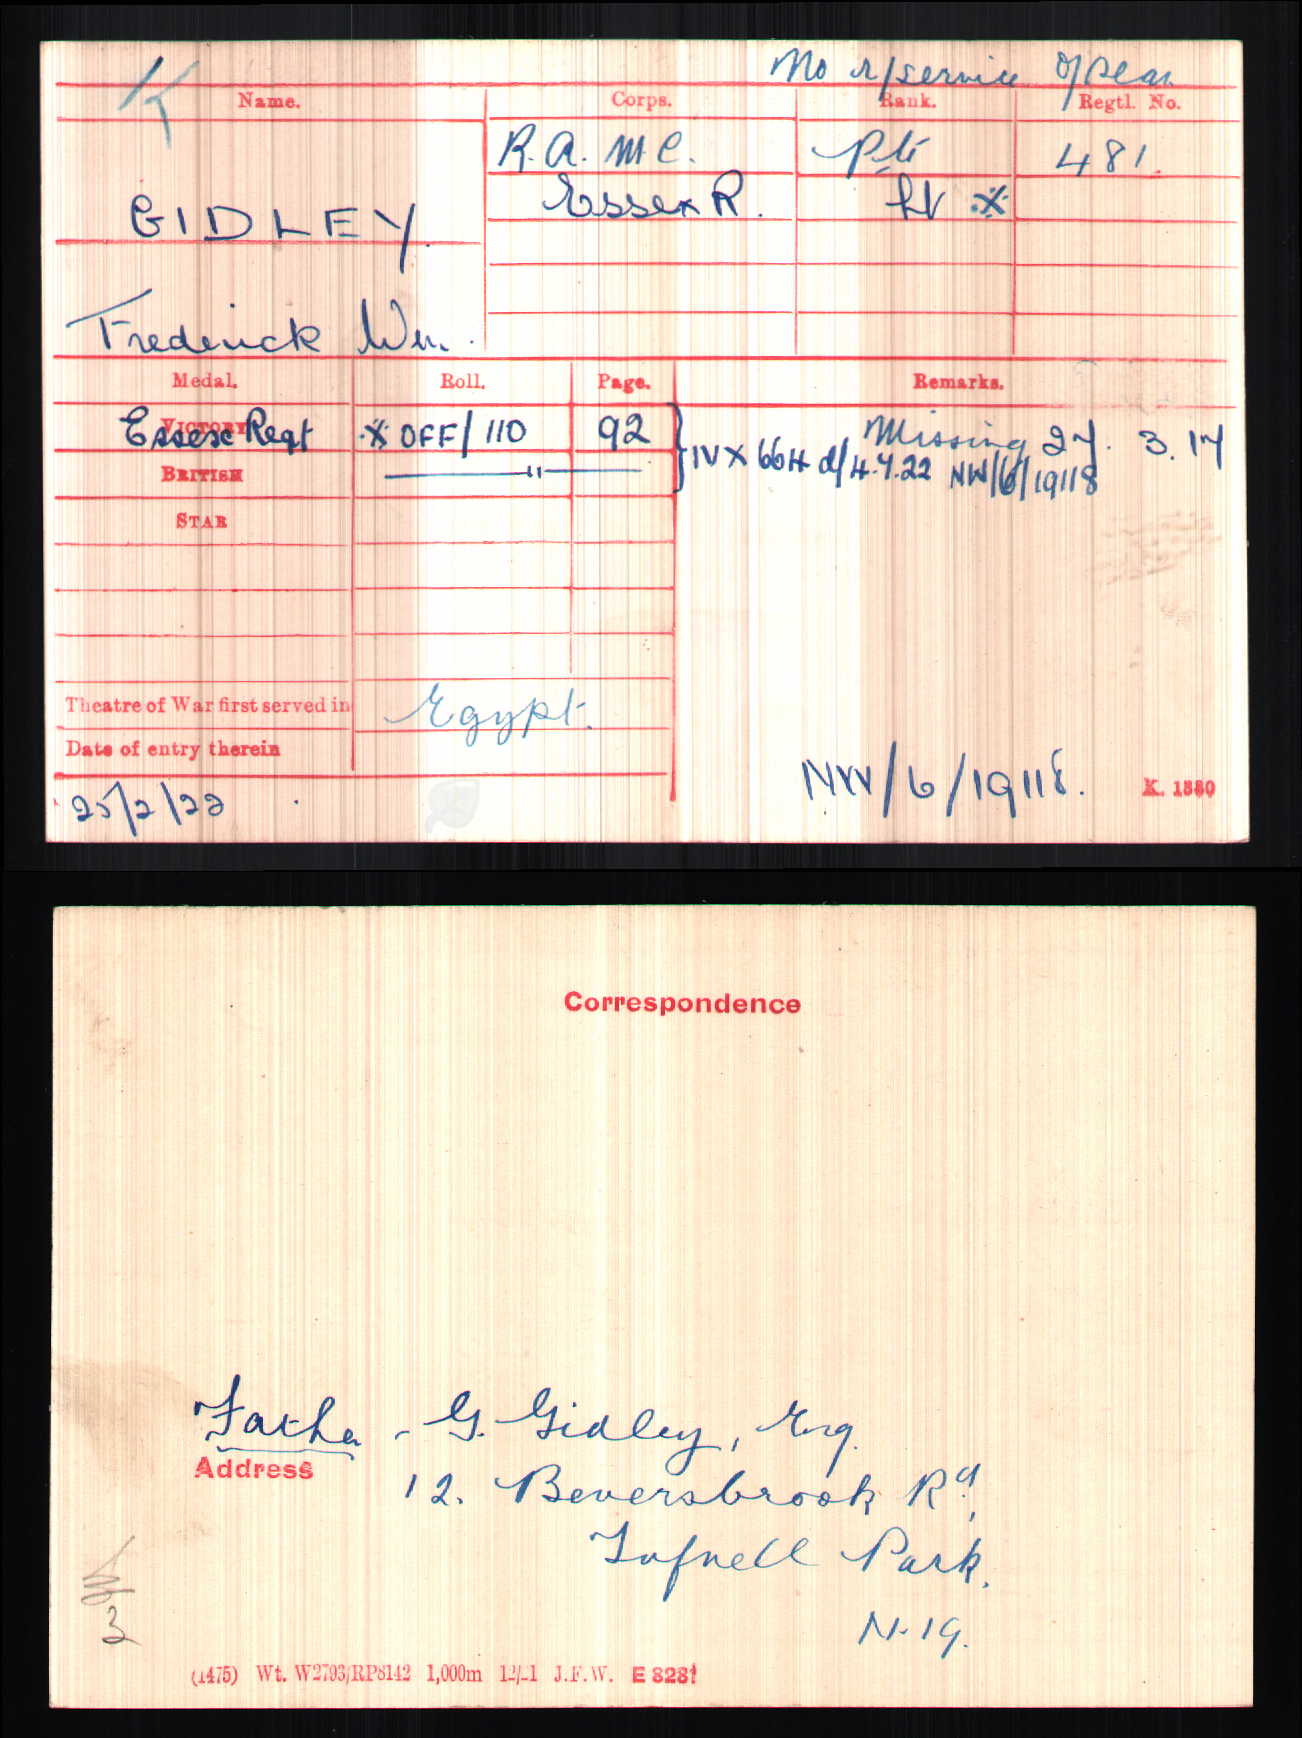 K
No r/service o/seas
Name. Corps. Rank. Regtl. No.
R.A.M.C. Pte 481.
Essex R. Lt ※
GIDLEY.
Frederick Wm.
Medal. Roll. Page. Remarks.
VICTORY Essex Regt ※ OFF/110 92 } Missing 27.3.17
BRITISH —"— IV X 66H d/4.7.22 NW/6/19118
STAR
Theatre of War first served in Egypt.
Date of entry therein
25/2/22 NW/6/19118. K. 1380
Correspondence
Father - G. Gidley, Esq.
Address 12. Beversbrook Rd.,
Tufnell Park.
N. 19.
3
(1475) Wt. W2793/RP8142 1,000m 12/21 J.F.W. E 828